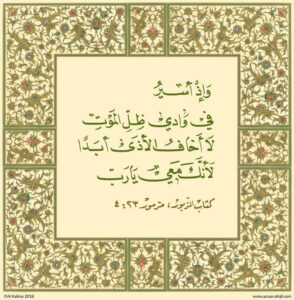 وَإِذْ أَسِيرُ
في وَادِي ظِلِّ المَوْتِ
لَا أَخَافُ الأَذَى أَبَدًا
لأَنَّكَ مَعِي يَا رَبّ
كتاب الزبور، مزمور ٢٣: ٤
©Al Kalima 2018